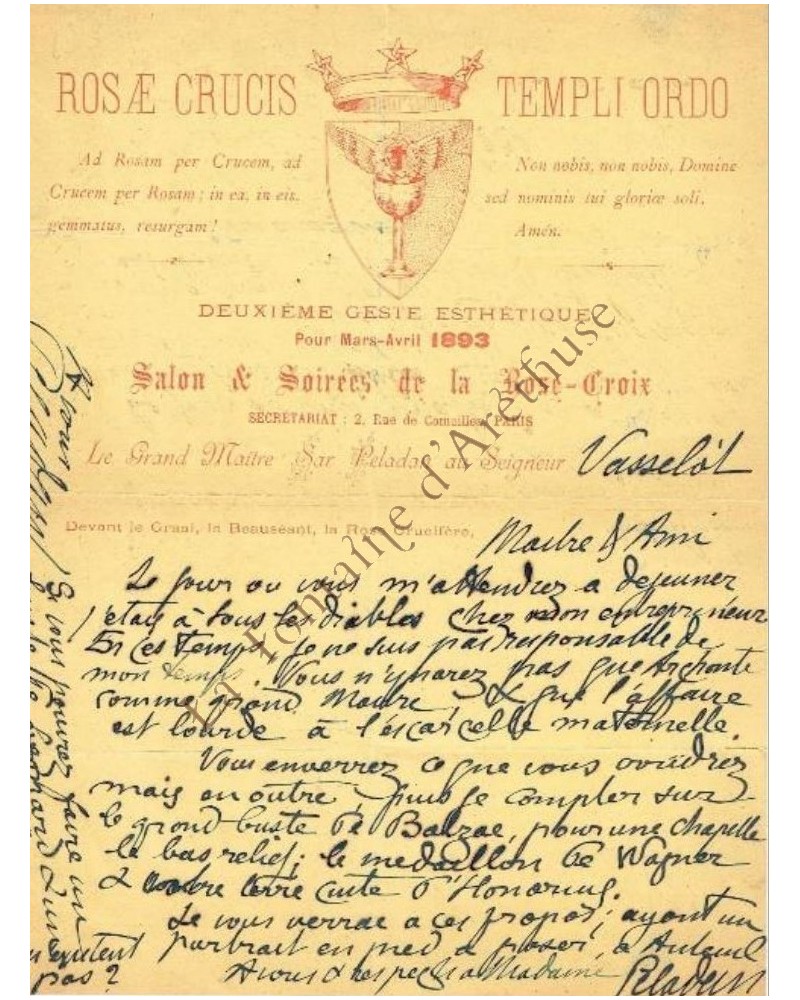 ROSÆ CRUCIS TEMPLI ORDO
Ad Rosam per Crucem, ad
Crucem per Rosam ; in ea, in eis,
gemmatus, resurgam !
Non nobis, non nobis, Domine
sed nominis tui gloriæ soli,
Amén.
DEUXIÈME GESTE ESTHÉTIQUE
Pour Mars-Avril 1893
Salon & Soirées de la Rose-Croix
SECRÉTARIAT : 2, Rue de Comailles, PARIS
Le Grand Maître Sar Peladan au Seigneur Vasselot
Devant le Graal, la Beauséant, la Rose Crucifère,
Maitre & Ami
Le jour ou vous m'attendrez a dejeuner
j'etais à tous les diables chez mon entrepreneur
En ces Temps je ne suis pas responsable de
mon temps. Vous n'ignorez pas que
comme grand Maitre, & que l'affaire
est lourde à l'escarcelle maternelle.
Vous enverrez ce que vous voudrez
mais en outre, puis je compter sur
le grand buste de Balzac, pour une chapelle
le bas relief ; le medaillon de Wagner
& terre cuite d'Honorius.
Je vous verrai a ces propos ; ayant un
portrait en pied a poser, a Auteuil
A vous & respects a Madame Peladan
Si vous pouvez faire un
pas ?
La Fontaine d'Aréthuse